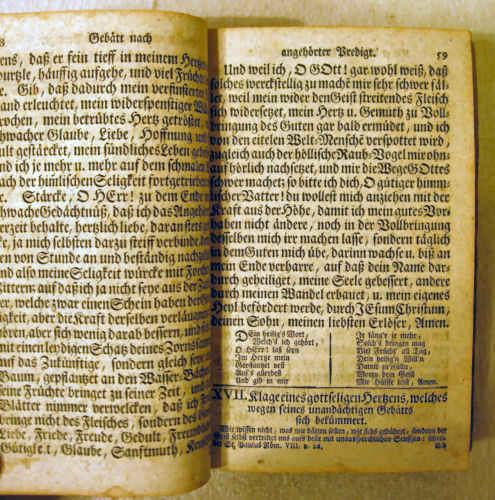 Gebätt nach
ens, daß er fein tieff in meinem Hertzen
wurtzle, häuffig aufgehe, und viel Frücht
e. Gib, daß dadurch mein verfinstert
and erleuchtet, mein widerspenstiger W
rochen, mein betrübtes Hertz getröstet,
hwacher Glaube, Liebe, Hoffnung und
ult gestärcket, mein sündliches Leben geb
und ich je mehr u. mehr auf dem schmalen
ach der himlischen Seligkeit fortgetrieben
Stärcke, O HErr! zu dem Ende
hwache Gedächtnuß, daß ich das Angehö
erzeit behalte, hertzlich liebe, daran stets
ke, ja mich selbsten darzu steiff verbinde,
en von Stunde an und beständig nachzu
nd also meine Seligkeit würcke mit Forch
Zittern: auf daß ich ja nicht seye aus der Za
er, welche zwar einen Schein haben der G
igkeit, aber die Krafft derselben verläugn
hören, aber sich wenig darab bessern, und ih
mit einen leydigen Schatz deines Zorns sam
auf das Zukünftige, sondern gleich seye
Baum, gepflantzt an den Wasser-Bäche
eine Früchte bringet zu seiner Zeit,
Blätter nimmer verwelcken, daß ich
bringe nicht des Fleisches, sondern des G
Liebe, Friede, Freude, Gedult, Freund
Gütigkeit, Glaube, Sanfftmuth, K
angehörter Predigt. 59
Und weil ich, O GOtt! gar wohl weiß, daß
solches werckstellig zu machē mir sehr schwer fäl-
let, weil mein wider den Geist streitendes Fleisch
sich widersetzet, mein Hertz u. Gemüth zu Voll-
bringung des Guten gar bald ermüdet, und ich
von den eitelen Welt-Menschē verspottet wird,
zugleich auch der höllische Raub-Vogel mir ohn-
aufhörlich nachsetzet, und mir die Wege GOttes
schwer machet; so bitte ich dich, O gütiger himm-
lischer Vatter! du wollest mich anziehen mit der
Krafft aus der Höhe, damit ich mein gutes Vor-
haben nicht ändere, noch in der Vollbringung
desselben mich irr machen lasse, sondern täglich
in dem Guten mich übe, darinn wachse u. biß an
mein Ende verharre, auf daß dein Name dar-
durch geheiliget, meine Seele gebessert, andere
durch meinen Wandel erbauet, u. mein eigenes
Heyl befördert werde, durch JEsum Christum,
deinen Sohn, meinen liebsten Erlöser, Amen.
DEin heilig's Wort,
Welch's ich gehört,
O HErr! laß seyn
Im Hertz mein
Verwahret vest
Auf's allerbest
Und gib in mir
Je läng'r je mehr,
Solch's bringen mag
Viel Frücht all Tag,
Dein heilig'n Will'n
Damit erfülln,
Wozu dein Geist
Mir Hülffe leist, Amen.
XVII. Klage eines gottseligen Hertzens, welches
wegen seines unandächtigen Gebätts
sich bekümmert.
Wir wissen nicht, was wir bätten sollen, wie sichs gebühret, sondern der
Geist selbst vertrittet uns aufs beste mit unaussprechlichen Seuftzen:
der Paulus Röm. VIII.